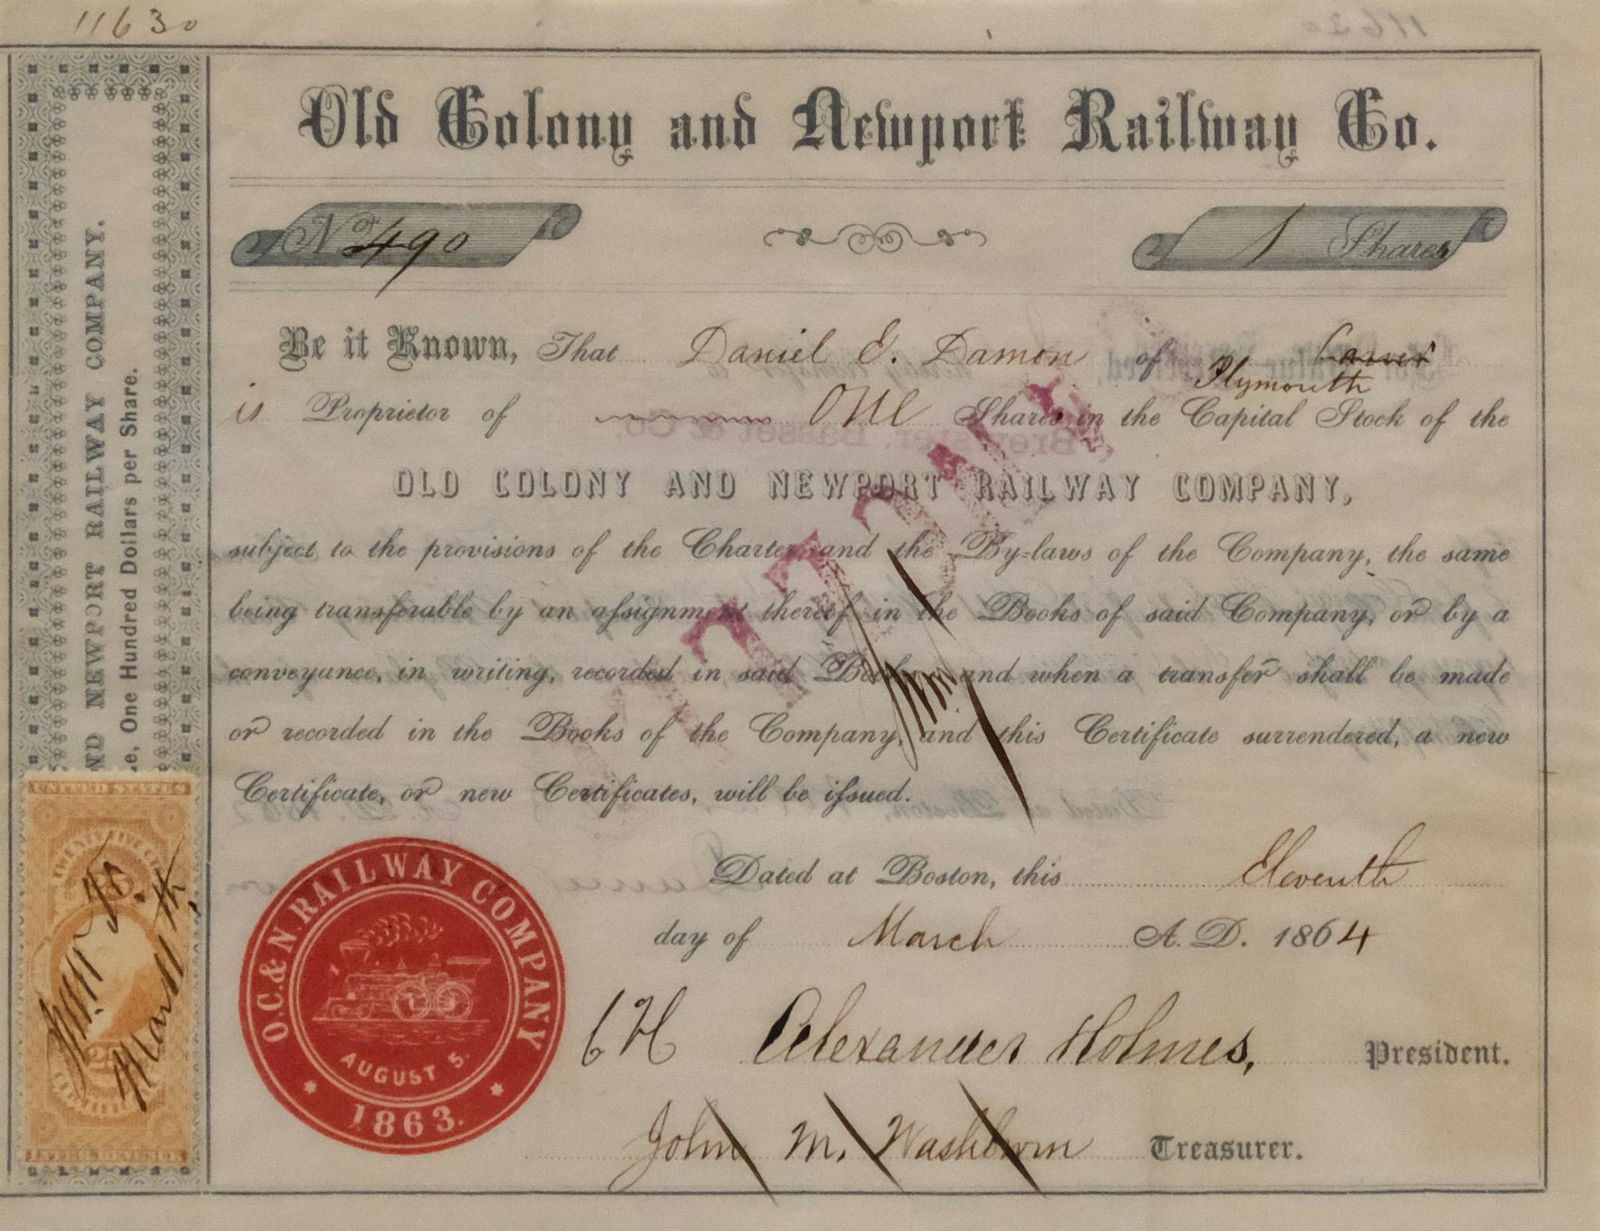 11630
Old Colony and Newport Railway Co.
No 490
1 Shares
Be it Known, That Daniel E. Damon of Carver
Plymouth
is Proprietor of one Shares in the Capital Stock of the
OLD COLONY AND NEWPORT RAILWAY COMPANY,
subject to the provisions of the Charter and the By-laws of the Company, the same
being transferable by an assignment thereof in the Books of said Company, or by a
conveyance, in writing, recorded in said Books, and when a transfer shall be made
or recorded in the Books of the Company, and this Certificate surrendered, a new
Certificate, or new Certificates, will be issued.
Dated at Boston, this Eleventh
day of March A. D. 1864
Alexander Holmes, President.
John M. Washburn Treasurer.
O.C.& N. RAILWAY COMPANY
AUGUST 5.
1863.
ND NEWPORT RAILWAY COMPANY.
e, One Hundred Dollars per Share.
UNITED STATES
TWENTY FIVE
25
INTER. REVENUE
March 11th
Brewster Basset & Co.